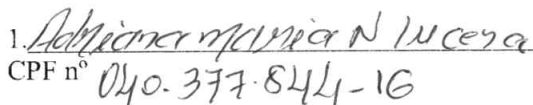 1. Adriana maria N lucena
CPF nº 040.377.844-16